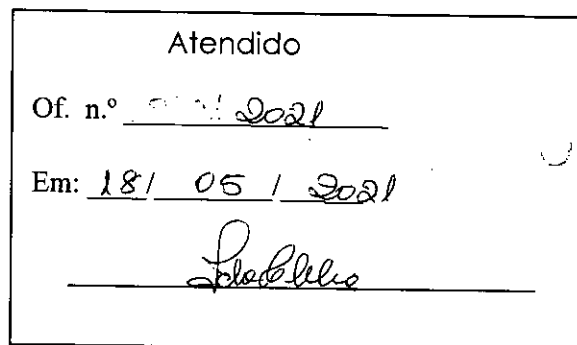 Atendido
Of. n.º 2021
Em: 18/ 05 / 2021